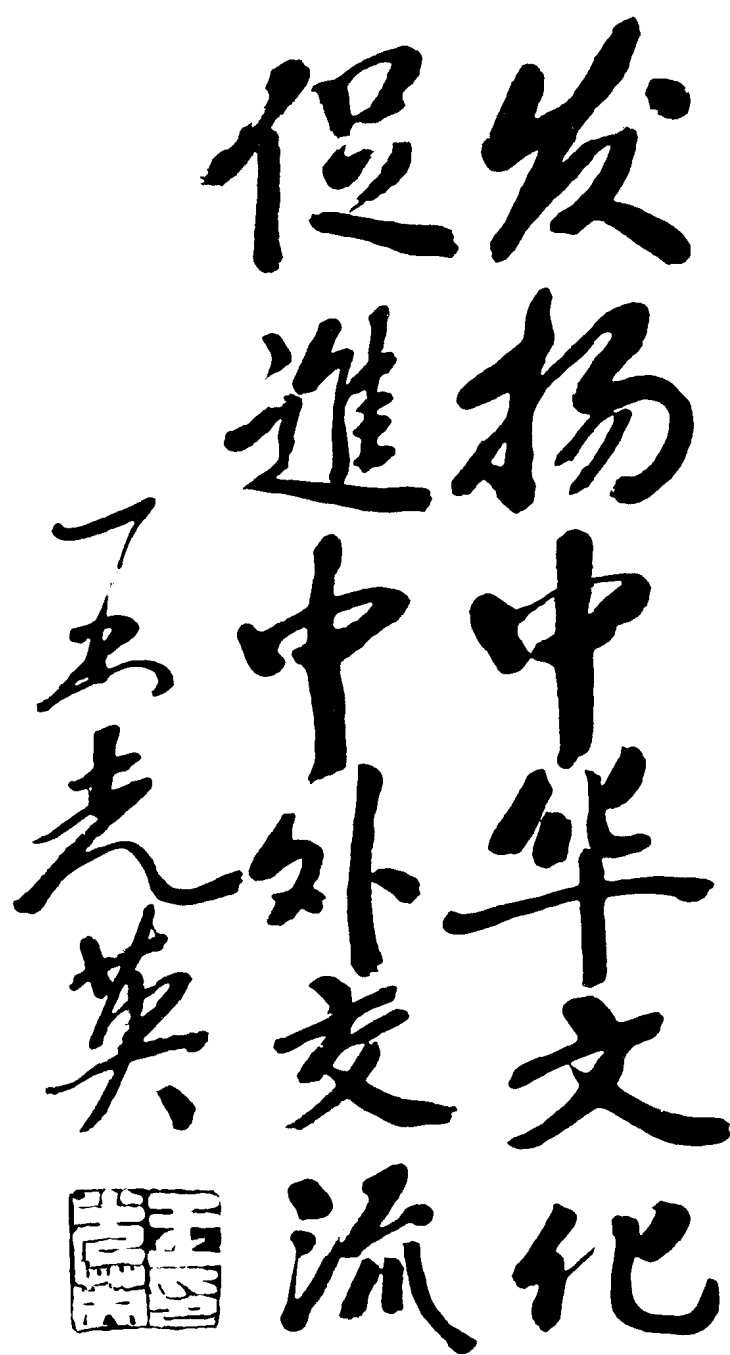 发扬中华文化
促進中外交流
王光英
王光英印